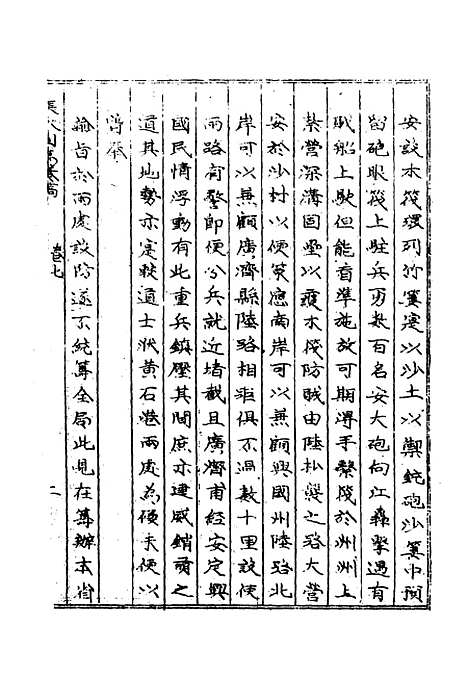 安設木筏環列竹簍寔以沙土以禦銃砲沙簍中預
留砲眼筏上駐兵勇數百名安大砲向江轟擊遇有
賊船上駛但能看準施放可期得手繫筏於州洲上
紮營深溝固壘以護木筏防賊由陸抄襲之路大營
安於沙村以便策應南岸可以兼顧興國州陸路北
岸可以兼顧廣濟縣陸路相距俱不過數十里設使
兩路有警即便分兵就近堵截且廣濟甫經安定興
國民情浮動有此重兵鎮壓其間庶亦建威銷萌之
道其地勢亦寔較道士洑黃石港兩處為優未便以
曾奉
諭旨於兩處設防遂不統籌全局此現在籌辦本省
卷七
二